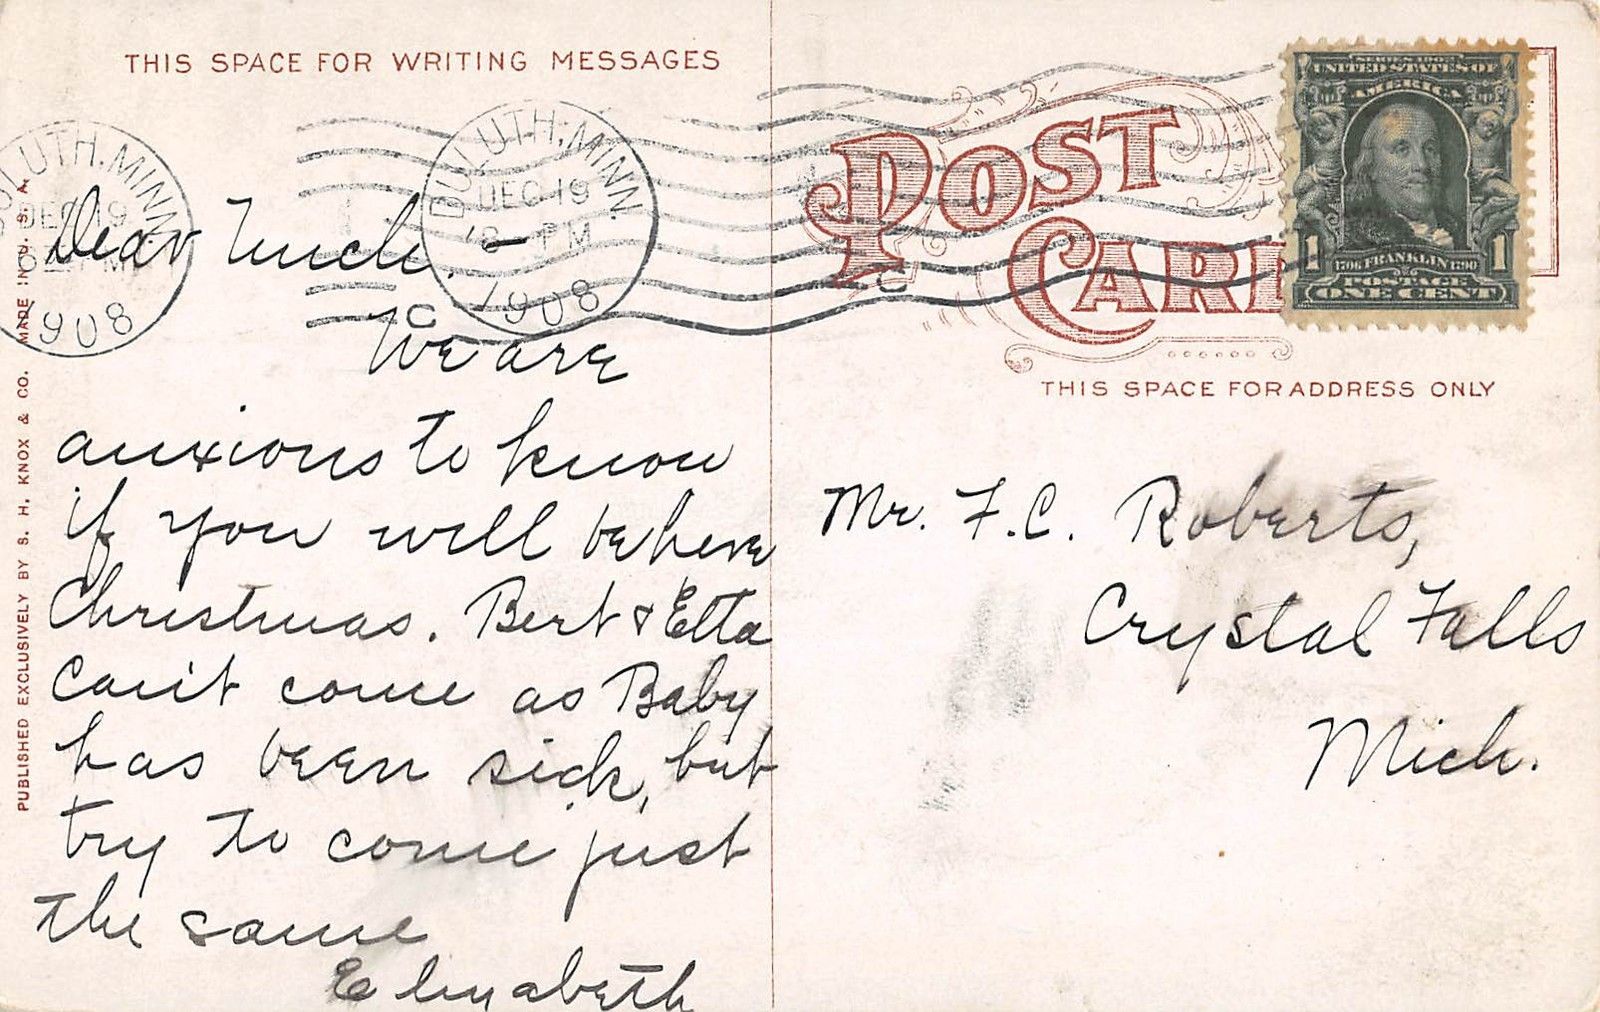 THIS SPACE FOR WRITING MESSAGES
DULUTH, MINN.
DEC 19
1908
DULUTH, MINN.
DEC 19
8 - PM
1908
C
C
Dear Uncle.
We are
anxious to know
if you will be here
Christmas. Bert & Etta
can't come as Baby
has been sick, but
try to come just
the same
Elizabeth
PUBLISHED EXCLUSIVELY BY S. H. KNOX & CO. MADE IN U. S. A.
POST
CARD
UNITED STATES OF
AMERICA
1706 FRANKLIN 1790
1 1
POSTAGE
ONE CENT
THIS SPACE FOR ADDRESS ONLY
Mr. F. C. Roberts,
Crystal Falls
Mich.